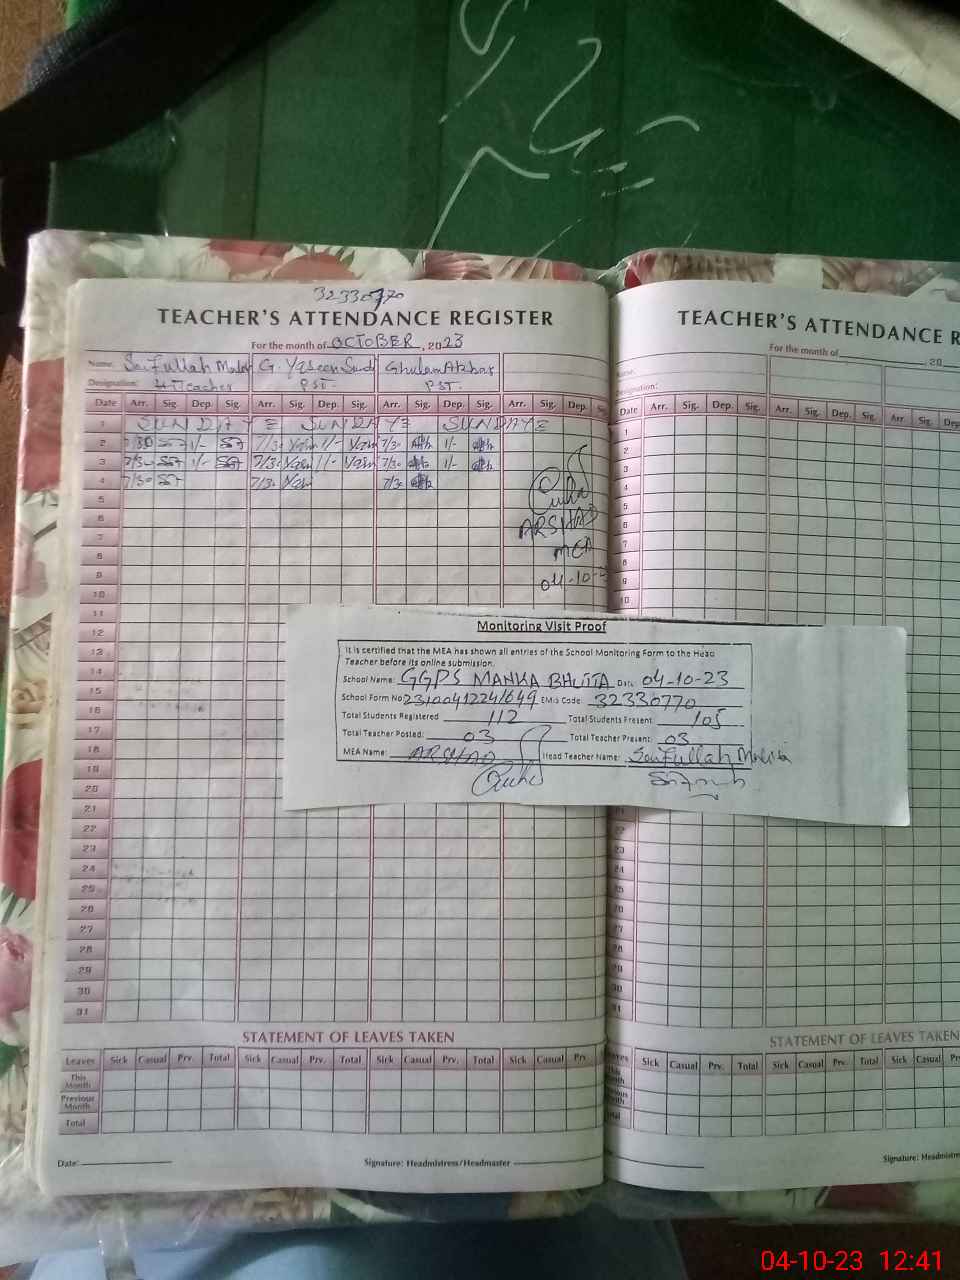 32330770
TEACHER'S ATTENDANCE REGISTER
For the month of OCTOBER, 2023
Name: Saifullah G. Yaseen Ghulam Akbar
Designation: H-Teacher PST. PST.
Date Arr. Sig. Dep. Sig. Arr. Sig. Dep. Sig. Arr. Sig. Dep. Sig. Arr. Sig. Dep. S
1 SUNDAYE SUNDAYE SUNDAYE
2 7/30 1/- 7/30 1/- 7/30 1/-
3 7/30 1/- 7/30 1/- 7/30 1/-
4 7/30 7/30 7/30
5
6
ARSHAD
7
MEA
8
9
04-10-
10
11
12
13
14
15
16
17
18
19
20
21
22
23
24
25
26
27
28
29
30
31
Monitoring Visit Proof
It is certified that the MEA has shown all entries of the School Monitoring Form to the Head
Teacher before its online submission.
School Name: GGPS MANKA BHUTTA Date 04-10-23
School Form No 23100412241649 EMIS Code 32330770
Total Students Registered 112 Total Students Present 105
Total Teacher Posted: 03 Total Teacher Present: 03
MEA Name: ARSHAD Head Teacher Name: Saifullah
STATEMENT OF LEAVES TAKEN
Leaves Sick Casual Prv. Total Sick Casual Prv. Total Sick Casual Prv. Total Sick Casual Prv
This Month
Previous Month
Total
Date: Signature: Headmistress/Headmaster
TEACHER'S ATTENDANCE R
For the month of , 20
Name:
Designation:
Date Arr. Sig. Dep. Sig. Arr. Sig. Dep. Sig. Arr. Sig.
1
2
3
4
5
6
7
8
9
10
21
22
23
24
25
26
27
28
29
30
31
STATEMENT OF LEAVES TAKEN
Sick Casual Prv. Total Sick Casual Prv. Total Sick Casual
Signature: Headmis
04-10-23 12:41